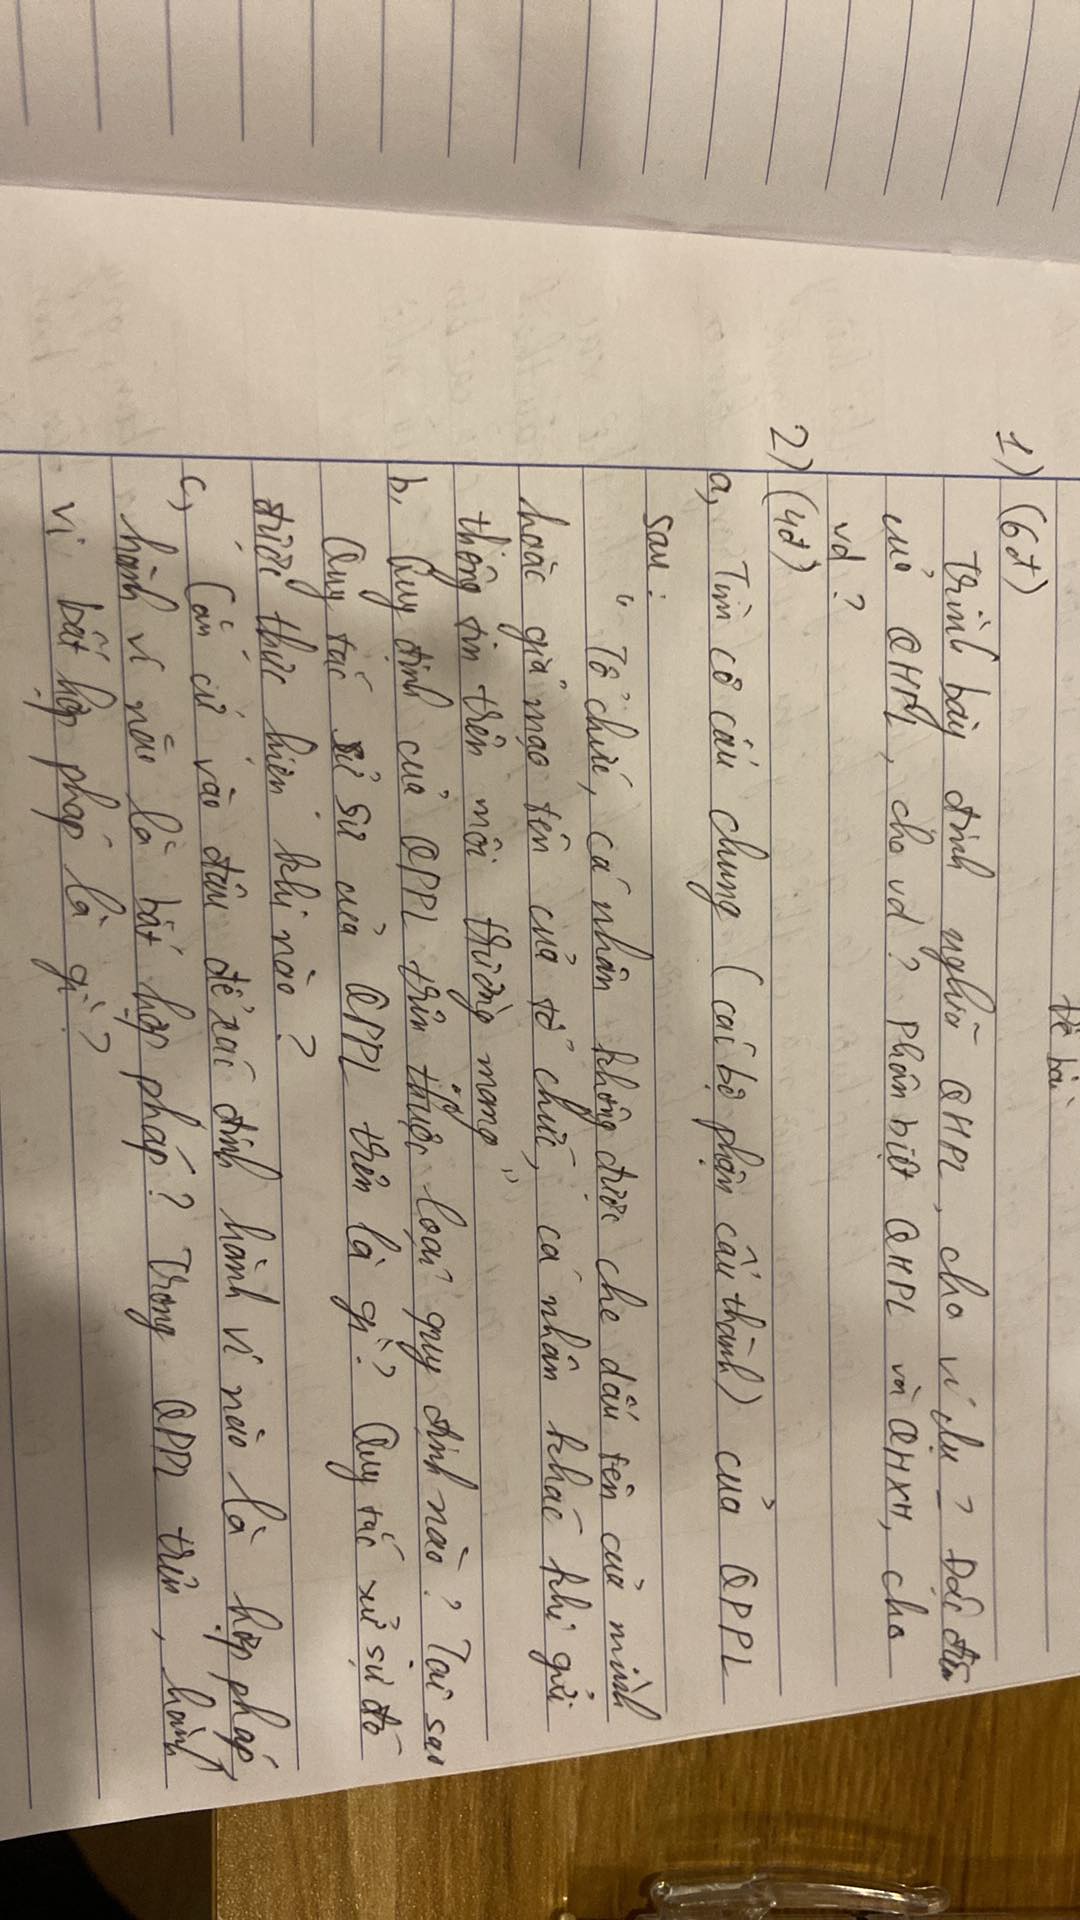 Đề bài
1) (6đ)
Trình bày định nghĩa QHPL, cho ví dụ? Đặc điểm
của QHPL, cho vd? Phân biệt QHPL và QHXH, cho
vd?
2) (4đ)
a, Tìm cơ cấu chung (cái bộ phận cấu thành) của QPPL
sau:
"Tổ chức, cá nhân không được che dấu tên của mình
hoặc giả mạo tên của tổ chức, cá nhân khác khi gửi
thông tin trên môi trường mạng"
b, Quy định của QPPL trên thuộc loại quy định nào? Tại sao
Quy tắc xử sự của QPPL trên là gì? Quy tắc xử sự đó
được thực hiện khi nào?
c, Căn cứ vào đâu để xác định hành vi nào là hợp pháp,
hành vi nào là bất hợp pháp? Trong QPPL trên, hành
vi bất hợp pháp là gì?